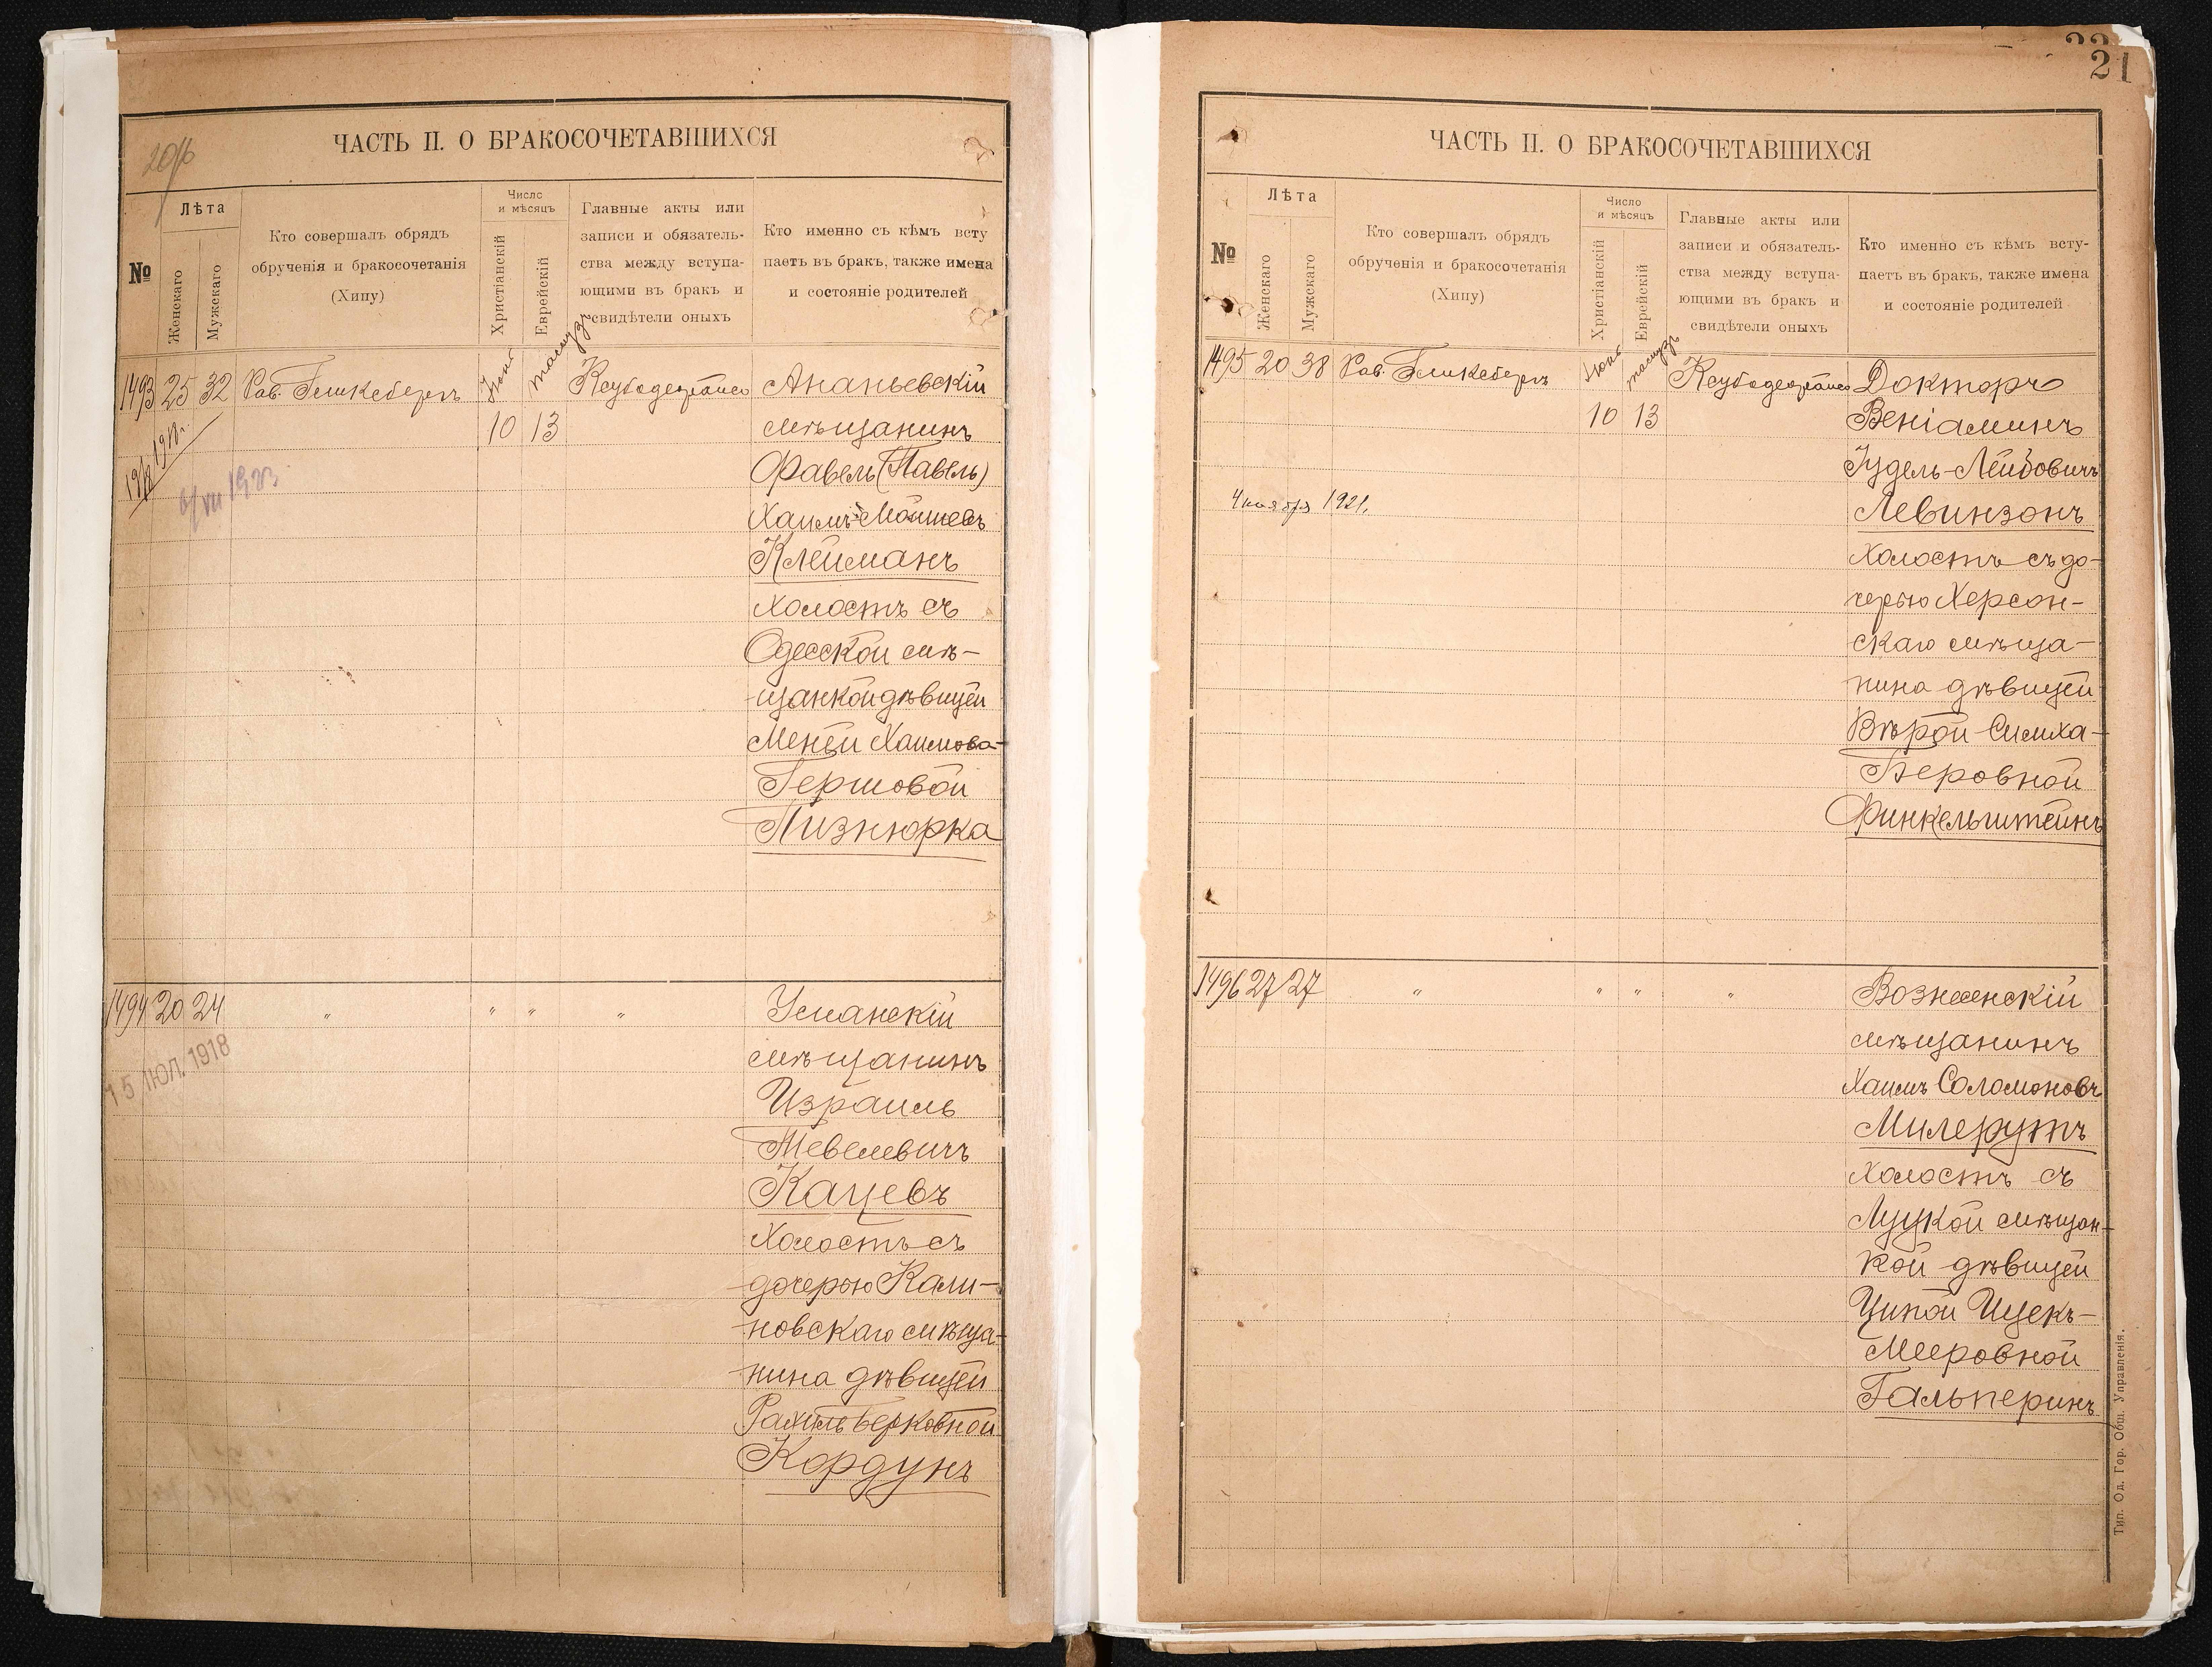 ЧАСТЬ II. О БРАКОСОЧЕТАВШИХСЯ
№
Лѣта
Женскаго
Мужскаго
Кто совершалъ обрядъ
обрученія и бракосочетанія
(Хипу)
Число
и мѣсяцъ
Христіанскій
Еврейскій
Главные акты или
записи и обязатель-
ства между вступа-
ющими въ бракъ и
свидѣтели оныхъ
Кто именно съ кѣмъ всту
паетъ въ бракъ, также имена
и состояніе родителей
1493 25 32 Рав. Гликсбергъ
Ананьевскій
10 13
мѣщанинъ
Фавель (Павелъ)
Хаимъ-Мошевъ
Клейманъ
холостъ съ
Одесской мѣ-
щанкой дѣвицей
Менѣй Хаимова-
Гершовой
Пизнюрка
1494 20 24 " " " "
Уманскій
15 ІЮЛ. 1918
мѣщанинъ
Израиль
Тевелевичъ
Кацевъ
Холостъ съ
дочерью Кали-
новскаго мѣща-
нина дѣвицей
Рахиль Берковной
Кордунъ
21
ЧАСТЬ II. О БРАКОСОЧЕТАВШИХСЯ
№
Лѣта
Женскаго
Мужскаго
Кто совершалъ обрядъ
обрученія и бракосочетанія
(Хипу)
Число
и мѣсяцъ
Христіанскій
Еврейскій
Главные акты или
записи и обязатель-
ства между вступа-
ющими въ бракъ и
свидѣтели оныхъ
Кто именно съ кѣмъ всту-
паетъ въ бракъ, также имена
и состояніе родителей
1495 20 38 Рав. Гликсбергъ
Докторъ
10 13
Веніаминъ
Іудель-Лейбовичъ
1921.
Левинзонъ
холостъ съ до-
черью Херсон-
скаго мѣща-
нина дѣвицей
Вѣрой Симха-
Беровной
Финкельштейнъ
1496 27 27 " " " "
Вознесенскій
мѣщанинъ
Хаимъ Соломоновъ
Милерутъ
холостъ съ
Луцкой мѣщан-
кой дѣвицей
Ципой Ицекъ-
Мееровной
Гальперинъ
Тип. Од. Гор. Общ. Управленія.